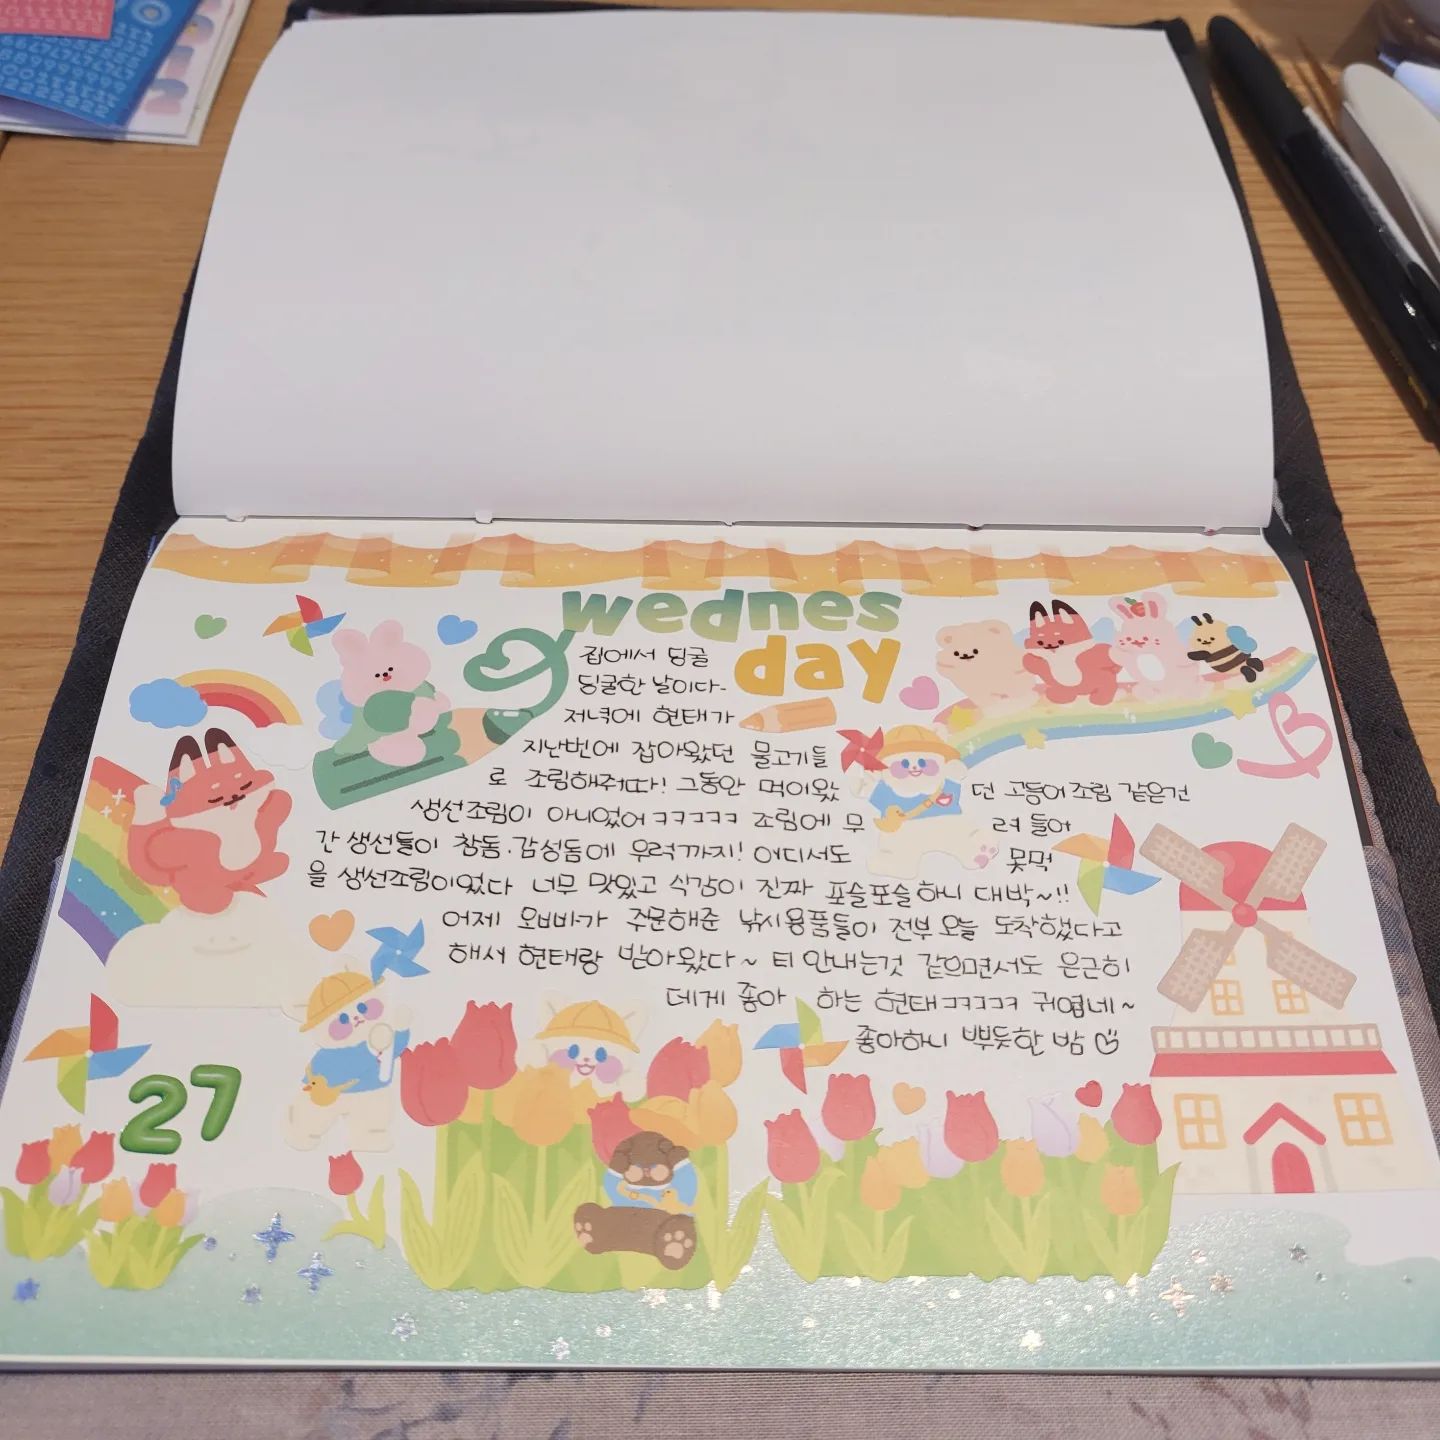 wednes
day
집에서 딩굴
딩굴한 날이다-
저녁에 현태가
지난번에 잡아왔던 물고기들
로 조림해줘따! 그동안 먹어왔던 고등어조림 같은건
생선조림이 아니었어 ㅋㅋㅋㅋㅋ 조림에 무려 들어
간 생선들이 참돔.감성돔에 우럭까지! 어디서도 못먹
을 생선조림이었다 너무 맛있고 식감이 진짜 포슬포슬하니 대박~!!
어제 오빠가 주문해준 낚시용품들이 전부 오늘 도착했다고
해서 현태랑 받아왔다~ 티 안내는것 같으면서도 은근히
데게 좋아 하는 현태ㅋㅋㅋㅋ 귀엽네~
좋아하니 뿌듯한 밤
27